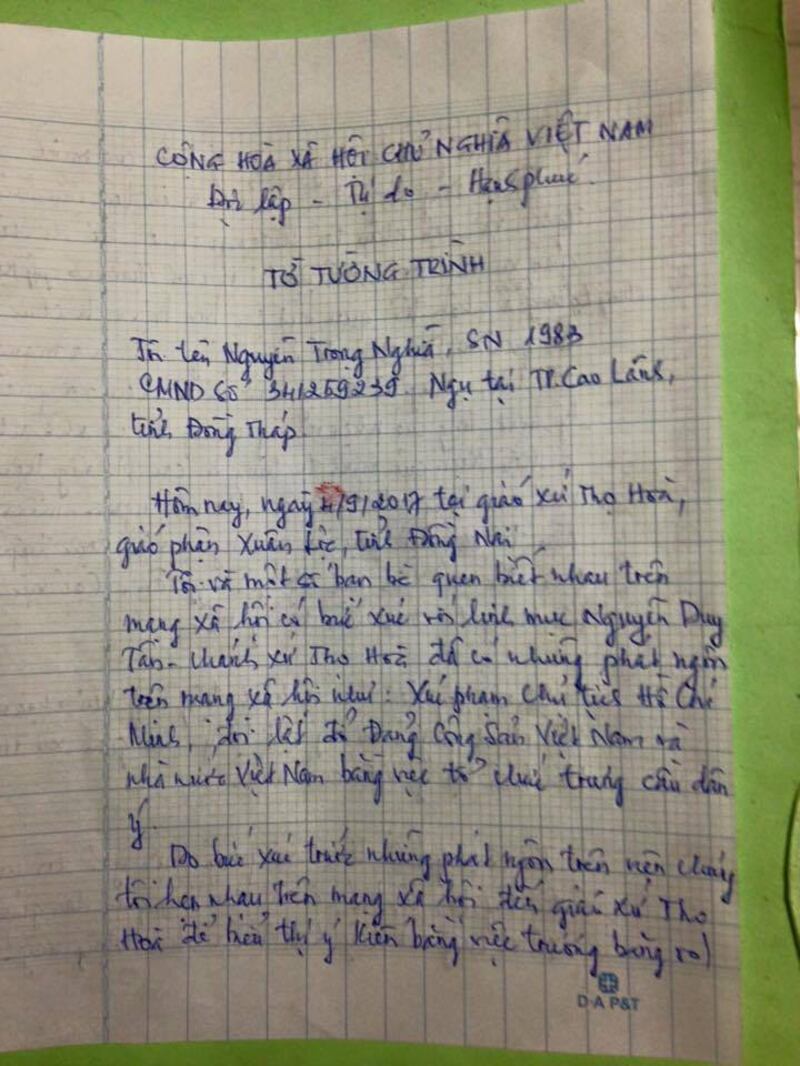 CỘNG HOÀ XÃ HỘI CHỦ NGHĨA VIỆT NAM
Độc lập - Tự do - Hạnh phúc.
TỜ TƯỜNG TRÌNH
Tôi tên Nguyễn Trọng Nghĩa, SN 1983
CMND số 341259239 Ngụ tại TP. Cao Lãnh,
tỉnh Đồng Tháp.
Hôm nay, ngày 4/9/2017 tại giáo xứ Thọ Hoà,
giáo phận Xuân Lộc, tỉnh Đồng Nai
Tôi và một số bạn bè quen biết nhau trên
mạng xã hội có bức xúc với linh mục Nguyễn Duy
Tân - chánh xứ Thọ Hoà đã có những phát ngôn
trên mạng xã hội như: Xúc phạm Chủ tịch Hồ Chí
Minh, đòi lật đổ Đảng Cộng Sản Việt Nam và
nhà nước Việt Nam bằng việc tổ chức trưng cầu dân
ý.
Do bức xúc trước những phát ngôn trên nên chúng
tôi hẹn nhau trên mạng xã hội đến giáo xứ Thọ
Hoà để biểu thị ý kiến bằng việc trương băng rol
D·A P&T